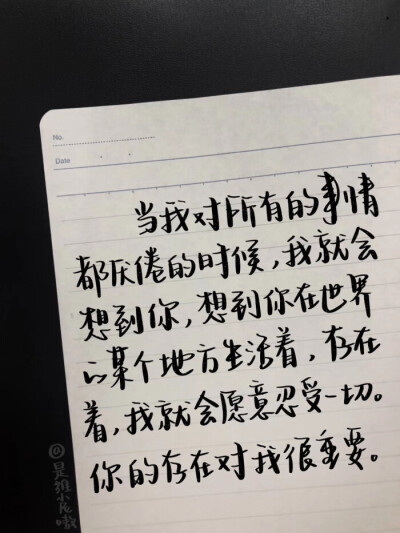 No.
Date
当我对所有的事情
都厌倦的时候,我就会
想到你,想到你在世界
的某个地方生活着,存在
着,我就会愿意忍受一切。
你的存在对我很重要。